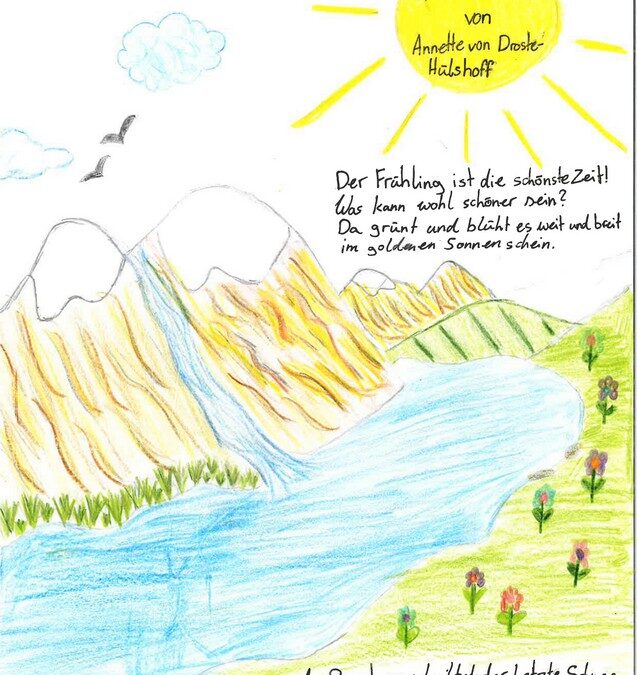 von
Annette von Droste-
Hülshoff
Der Frühling ist die schönste Zeit!
Was kann wohl schöner sein?
Da grünt und blüht es weit und breit
im goldenen Sonnenschein.
der letzte